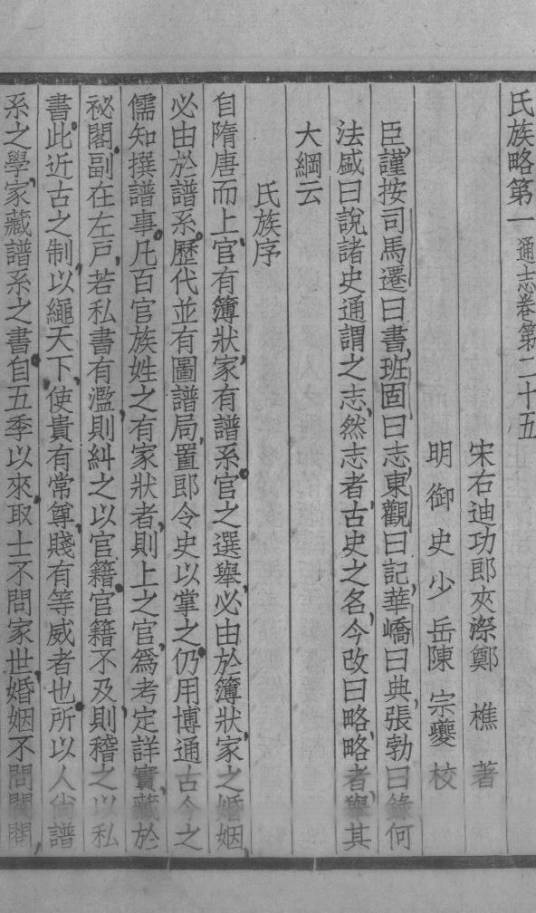 氏族略第一 通志卷第二十五
宋右迪功郎夾漈鄭 樵 著
明御史少岳陳 宗夔 校
臣謹按司馬遷曰書班固曰志東觀曰記華嶠曰典張勃曰錄何
法盛曰說諸史通謂之志然志者古史之名今改曰略略者舉其
大綱云
氏族序
自隋唐而上官有簿狀家有譜系官之選舉必由於簿狀家之婚姻
必由於譜系歷代並有圖譜局置郎令史以掌之仍用博通古今之
儒知撰譜事凡百官族姓之有家狀者則上之官爲考定詳實藏於
祕閣副在左戶若私書有濫則糾之以官籍官籍不及則稽之以私
書此近古之制以繩天下使貴有常尊賤有等威者也所以人尚譜
系之學家藏譜系之書自五季以來取士不問家世婚姻不問閥閱